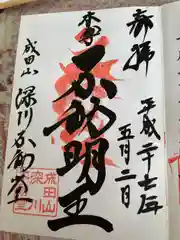 奉拝
平成二十七年
五月二日
本尊
不動明王
成田山
深川不動堂
成田山
深川